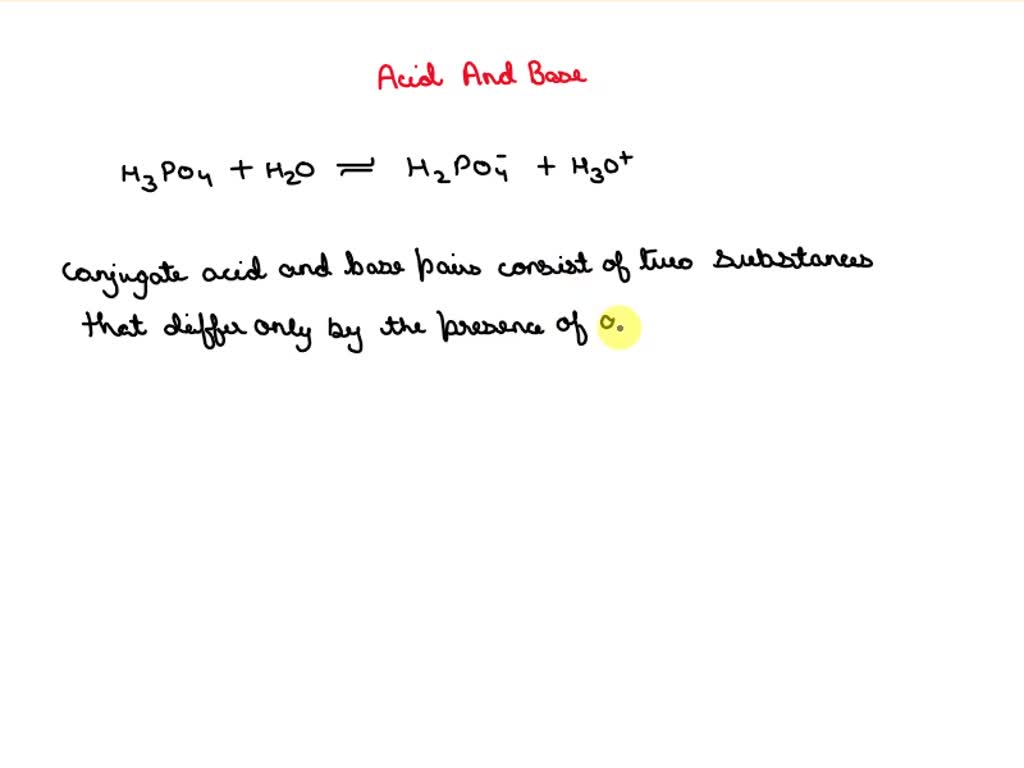 Acid And Base
H₃PO₄ + H₂O ⇌ H₂PO₄⁻ + H₃O⁺
conjugate acid and base pairs consist of two substances
that differ only by the presence of a